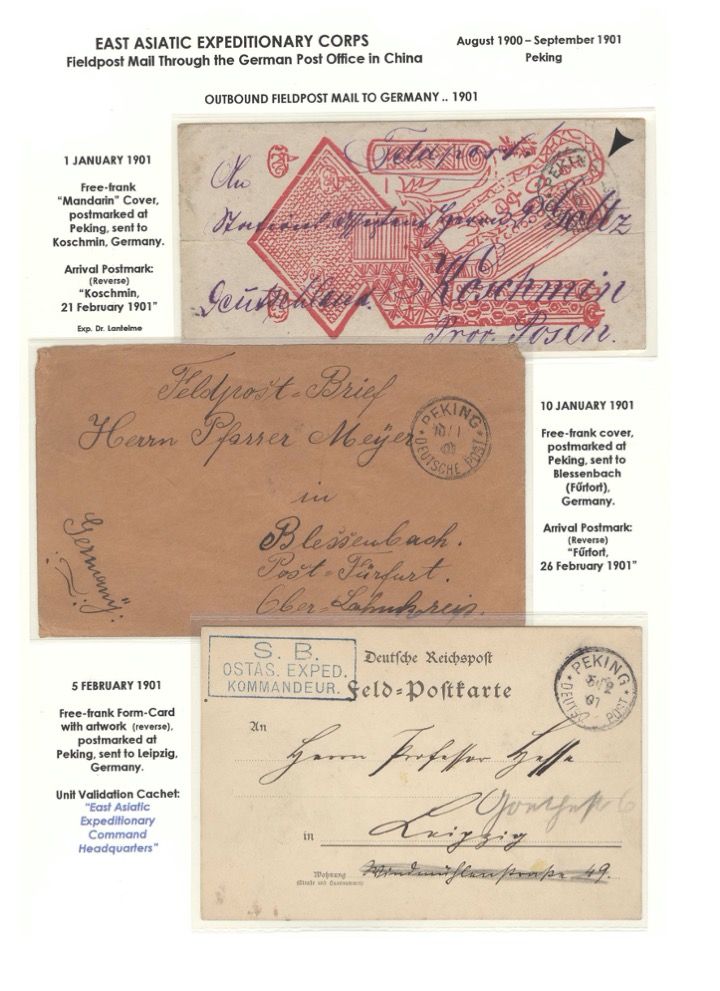 EAST ASIATIC EXPEDITIONARY CORPS
Fieldpost Mail Through the German Post Office in China
August 1900 – September 1901
Peking
OUTBOUND FIELDPOST MAIL TO GERMANY .. 1901
1 JANUARY 1901
Free-frank
"Mandarin" Cover,
postmarked at
Peking, sent to
Koschmin, Germany.
Arrival Postmark:
(Reverse)
"Koschmin,
21 February 1901"
Exp. Dr. Lanteime
Feldpost.
An
PEKING
Herrn
Deutschland.
Koschmin
Prov. Posen.
Feldpost-Brief
Herrn Pfarrer Meyer
in
Blessenbach.
Post-Fürfurt.
Ober-Lahnkreis.
Germany.
PEKING
10/1
01
DEUTSCHE POST
10 JANUARY 1901
Free-frank cover,
postmarked at
Peking, sent to
Blessenbach
(Fűrfort),
Germany.
Arrival Postmark:
(Reverse)
"Fűrfort,
26 February 1901"
5 FEBRUARY 1901
Free-frank Form-Card
with artwork (reverse),
postmarked at
Peking, sent to Leipzig,
Germany.
Unit Validation Cachet:
"East Asiatic
Expeditionary
Command
Headquarters"
S. B.
OSTAS. EXPED.
KOMMANDEUR.
Deutsche Reichspost
Feld-Postkarte
PEKING
5/2
01
DEUTSCHE POST
An
Herrn Professor Hesse
Goethestr 6
in Leipzig
Wohnung
(Straße und Hausnummer)
Windmühlenstraße 49.